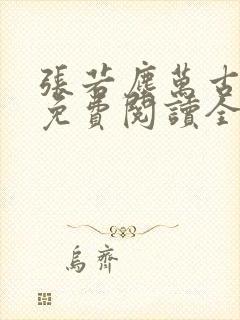 張若塵萬古
免費閱讀全
烏齊